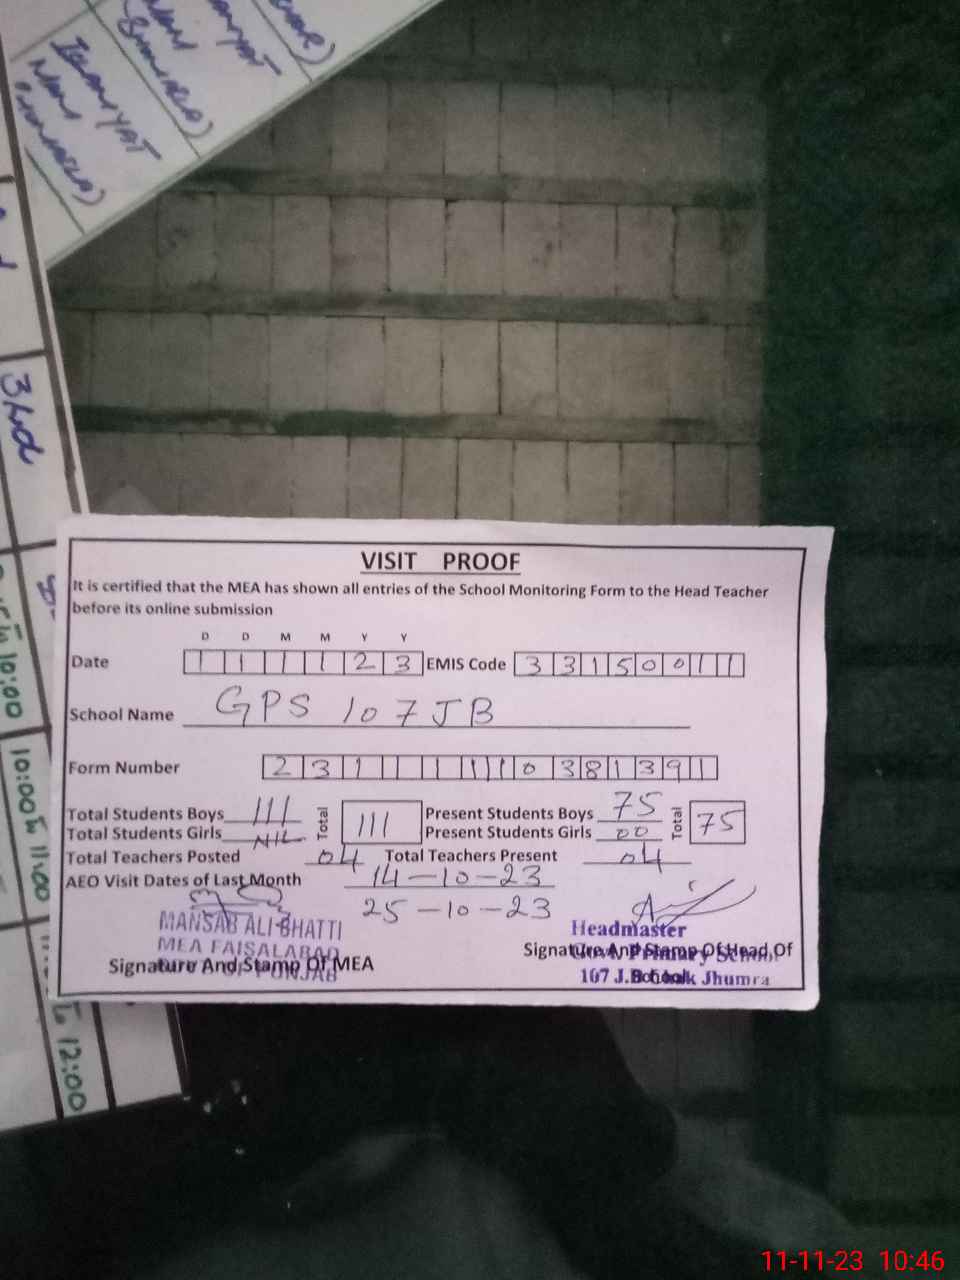 3rd
10:00 to 11:00
to 12:00
VISIT PROOF
It is certified that the MEA has shown all entries of the School Monitoring Form to the Head Teacher
before its online submission
D D M M Y Y
Date 1 1 1 1 2 3 EMIS Code 3 3 1 5 0 0 1 1
School Name GPS 107 JB
Form Number 2 3 1 1 1 1 1 1 0 3 8 1 3 9 1
Total Students Boys 111 Total 111 Present Students Boys 75 Total 75
Total Students Girls NIL Present Students Girls 00
Total Teachers Posted 04 Total Teachers Present 04
AEO Visit Dates of Last Month 14-10-23
25-10-23
MANSAB ALI BHATTI
MEA FAISALABAD
PUNJAB
Signature And Stamp Of MEA
Headmaster
Signature And Stamp Of Head Of
School
Primary School
107 J.B Jhumra
11-11-23 10:46